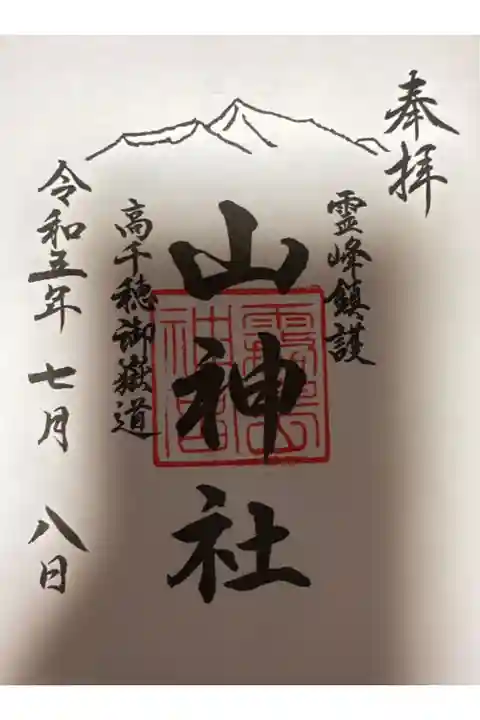 奉拝
霊峰鎮護
山神社
霧島
神宮
高千穂御嶽道
令和五年 七月 八日